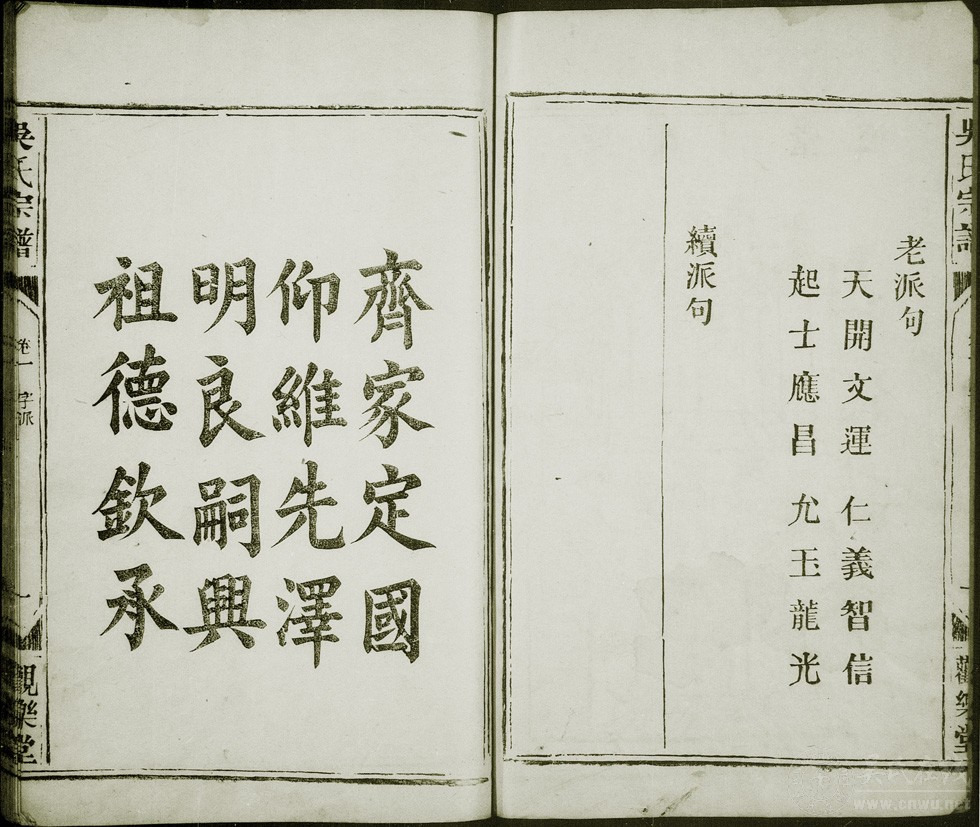 吳氏宗譜
老派句
天開文運 仁義智信
起士應昌 允玉龍光
續派句
齊家定國
仰維先澤
明良嗣興
祖德欽承
吳氏宗譜
卷一 字派
一
觀樂堂
www.cnwu.net